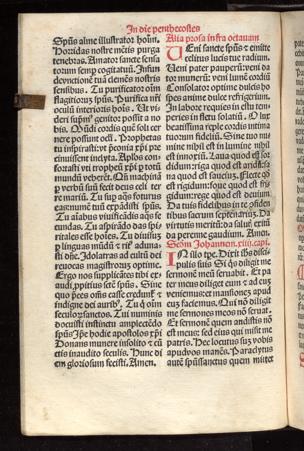 In die penthecostes
Spūs alme illustrator hoīm.
Horridas nostre mētis purga
tenebras. Amator sancte sensa
torum semp cogitatuū. Infun
de vnctionē tuā clemēs nostris
sensibus. Tu purificator oīm
flagitiorū spūs. Purifica nrī
oculū interioris hoīs. Ut vi
deri supm⁹ genitor possit a no
bis. Mūdi cordis quē soli cer
nere possunt oculi. Prophetas
tu inspirasti: vt p̄conia xp̄i pre
cinuissent inclyta. Aplos con
fortasti vti tropheū xp̄i p totū
mundū veherēt. Qn̄ machinā
p verbū suū fecit deus celi ter
re mariū. Tu sup aq̄s foturus
eas numē tuū expādisti spūs.
Tu aīabus viuificādis aq̄s fe
cundas. Tu aspirādo das spi
ritales esse hoīes. Tu diuisuꝫ
p linguas mūdū ⁊ rit⁹ aduna
sti dn̄e. Idolatras ad cultū dei
reuocas magistrorū optime.
Ergo nos supplicātes tibi ex
audi, ppitius sctē spūs. Sine
quo p̄ces oēs casse credunt̄ ⁊
indigne dei aurib⁹. Tu q̄ oīm
seculorꝫ sanctos. Tui numinis
docuisti instinctu amplectēdo
spūs. Ip̄e hodie apostolos xp̄i
Donans munere insolito ⁊ cū
ctis inaudito seculis. Hunc di
em gloriosum fecisti. Amen.
Alia prosa infra octauam
Veni sancte spūs ⁊ emitte
celitus lucis tue radium.
Veni pater pauperū: veni da
tor munerū: veni lumē cordiū
Consolator optime dulcis ho
spes anime dulce refrigerium.
In labore requies in estu tem
peries in fletu solatiū. O lux
beatissima reple cordis intima
tuorum fidelū. Sine tuo nu
mine nihil est in lumine nihil
est innoxiū. Laua quod est sor
didum: riga quod est aridū: sa
na quod est sauciuꝫ. Flecte qd
est rigidum: foue quod est fri
gidum: rege quod est deuium.
Da tuis fidelibus in te cōfidē
tibus sacrum septenariuꝫ. Da
virtutis meritū: da salut⁹ exitū
da perenne gaudium. Amen.
Scđm Johannem. xiiii. capi.
In illo tpe. Dixit iħs disci
pulis suis Si qs diligit me
sermonē meū seruabit. Et pa
ter meus diliget eum ⁊ ad euꝫ
veniemus: et mansionez apud
eum faciemus. Qui nō diligit
me sermones meos nō seruat.
Et sermonē quem audistis nō
est meus: sed eius qui misit me
patris. Hec locutus suꝫ vobis
apud vos manēs. Paraclytus
autē spūssanctus quem mittet